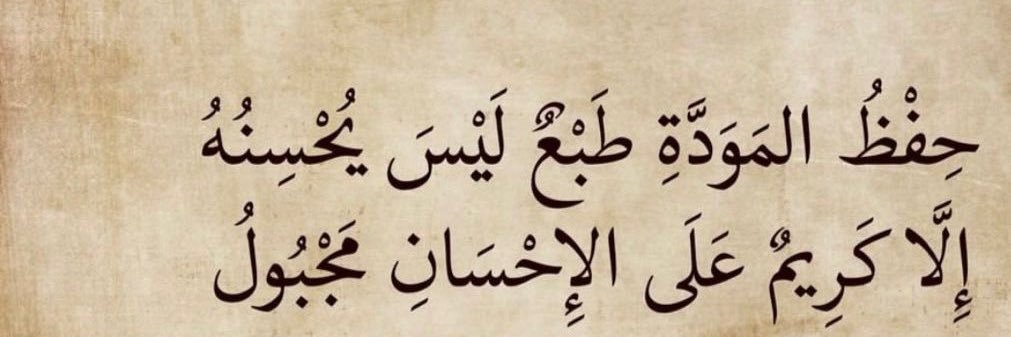 حِفْظُ المَوَدَّةِ طَبْعٌ لَيْسَ يُحْسِنُهُ
إِلَّا كَرِيمٌ عَلَى الإِحْسَانِ مَجْبُولُ